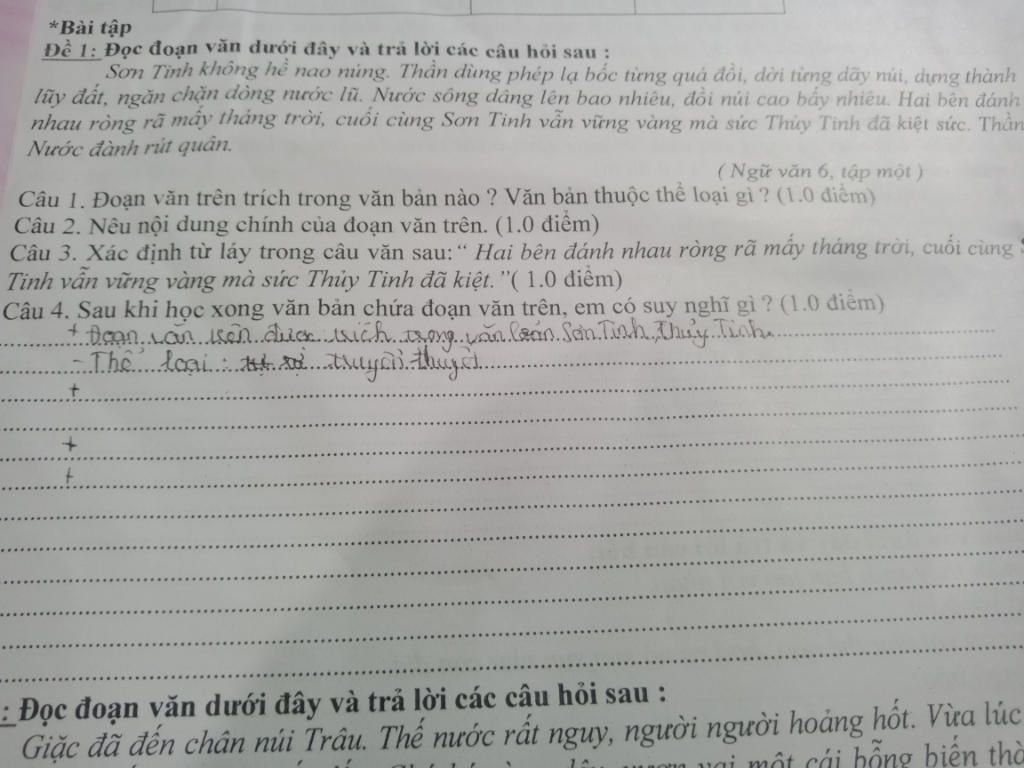 *Bài tập
Đề 1: Đọc đoạn văn dưới đây và trả lời các câu hỏi sau :
Sơn Tinh không hề nao núng. Thần dùng phép lạ bốc từng quả đồi, dời từng dãy núi, dựng thành
lũy đất, ngăn chặn dòng nước lũ. Nước sông dâng lên bao nhiêu, đồi núi cao bấy nhiêu. Hai bên đánh
nhau ròng rã mấy tháng trời, cuối cùng Sơn Tinh vẫn vững vàng mà sức Thủy Tinh đã kiệt sức. Thần
Nước đành rút quân.
( Ngữ văn 6, tập một )
Câu 1. Đoạn văn trên trích trong văn bản nào ? Văn bản thuộc thể loại gì ? (1.0 điểm)
Câu 2. Nêu nội dung chính của đoạn văn trên. (1.0 điểm)
Câu 3. Xác định từ láy trong câu văn sau: “ Hai bên đánh nhau ròng rã mấy tháng trời, cuối cùng
Tinh vẫn vững vàng mà sức Thủy Tinh đã kiệt. ”( 1.0 điểm)
Câu 4. Sau khi học xong văn bản chứa đoạn văn trên, em có suy nghĩ gì ? (1.0 điểm)
+ Đoạn văn trên được trích trong văn bản Sơn Tinh, Thủy Tinh.
- Thể loại : truyền thuyết
+
+
+
: Đọc đoạn văn dưới đây và trả lời các câu hỏi sau :
Giặc đã đến chân núi Trâu. Thế nước rất nguy, người người hoảng hốt. Vừa lúc
vươn vai một cái bỗng biến